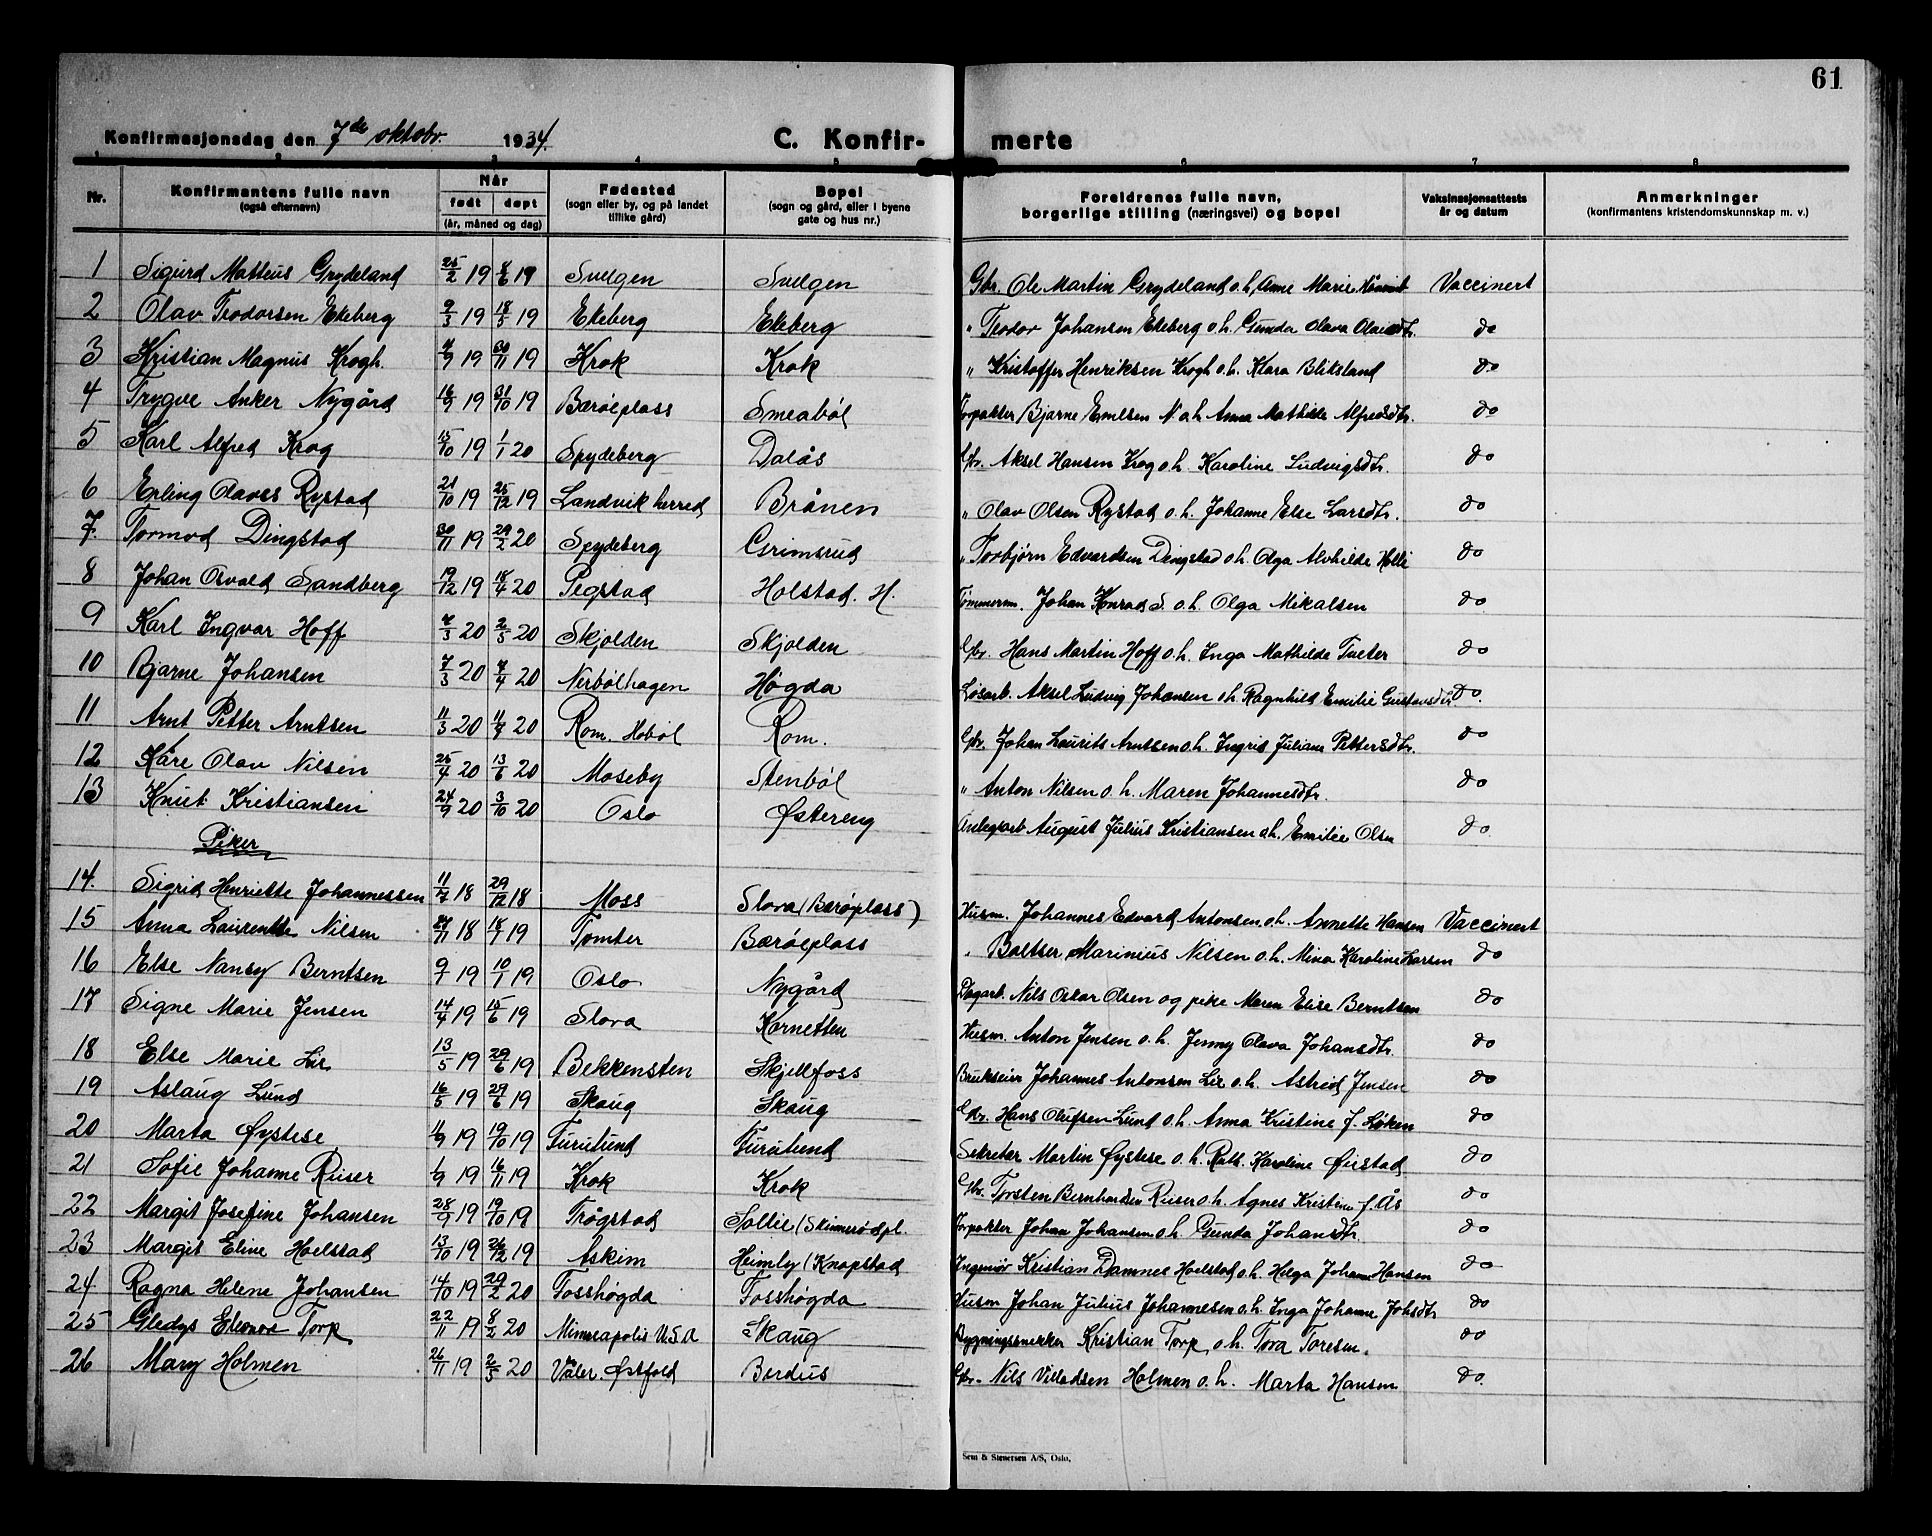 61
Konfirmasjonsdag den 7de oktobr. 1934. C. Konfir- merte
1 2 3 4 5 6 7 8
Nr. Konfirmantens fulle navn (også efternavn) Når født døpt (år, måned og dag) Fødested (sogn eller by, og på landet tillike gård) Bopel (sogn og gård, eller i byene gate og hus nr.) Foreldrenes fulle navn, borgerlige stilling (næringsvei) og bopel Vaksinasjonsattests år og datum Anmerkninger (konfirmantens kristendomskunnskap m. v.)
1 Sigurd Matteus Grydeland 25/2 19 8/6 19 Svelgen Svelgen Gbr. Ole Martin Grydeland o.h. Anne Marie Vaccinert
2 Olav Teodorsen Ekeberg 9/3 19 18/5 19 Ekeberg Ekeberg " Teodor Johansen Ekeberg o.h. Gunda Olava Olaisdtr. do
3 Kristian Magnus Krogh. 4/9 19 30/11 19 Krok Krok " Kristoffer Henriksen Krogh o.h. Klara Bliksland do
4 Trygve Anker Nygård 16/9 19 31/10 19 Barøeplass Smeabøl Forpakter Bjarne Emilsen N. o.h. Anna Mathilde Alfredsdtr. do
5 Karl Alfred Krog 15/10 19 1/1 20 Spydeberg Dalås Gbr. Aksel Hansen Krog o.h. Karoline Ludvigsdtr. do
6 Erling Olavss Rystad 21/10 19 25/12 19 Landvik herred Brånen " Olav Olsen Rystad o.h. Johanne Else Larsdtr. do
7. Tormod Dingstad 30/11 19 29/2 20 Spydeberg Grimsrud " Torbjørn Edvardsen Dingstad o.h. Olga Alvhilde Holli do
8 Johan Osvald Sandberg 19/12 19 18/4 20 Pegstad Holstad. H. Tømmerm. Johan Konrad S. o.h. Olga Mikalsen do
9 Karl Ingvar Hoff 4/3 20 2/5 20 Skjolden Skjolden Gbr. Hans Martin Hoff o.h. Inga Mathilde Tveter do
10 Bjarne Johansen 7/3 20 4/4 20 Nerbølhagen Høgda Løsarb. Aksel Ludvig Johansen o.h. Ragnhild Emilie Gustavsdtr do.
11 Arnt Petter Arntsen 11/3 20 11/4 20 Rom. Hobøl Rom. Gbr. Johan Laurits Arntsen o.h. Ingrid Juliane Pettersdtr. do
12 Kåre Olav Nilsen 25/4 20 13/6 20 Moseby Stenbøl " Anton Nilsen o.h. Maren Johannesdtr. do
13 Knut Kristiansen 24/9 20 3/10 20 Oslo Østereng Anlegsarb. August Julius Kristiansen o.h. Emilie Olsen do.
Piker
14. Sigrid Henriette Johannessen 11/7 18 29/12 18 Moss Slora (Barøeplass) Husm. Johannes Edvard Antonsen o.h. Annette Hansen Vaccinert
15 Anna Laurentse Nilsen 27/11 18 18/7 19 Tomter Barøeplass " Baltser Marinius Nilsen o.h. Mina Karoline Larsen do
16 Else Nancy Berntsen 9/1 19 10/1 19 Oslo Nygård Dagarb. Nils Oskar Olsen og pike Maren Elise Berntsen do
17 Signe Marie Jensen 14/4 19 15/6 19 Slora Kornetten Husm. Anton Jensen o.h. Jenny Olava Johansdtr. do
18 Else Marie Lie 13/5 19 29/6 19 Bekkensten Skjellfoss Brukseier Johannes Antonsen Lie o.h. Astrid Jensen do
19 Aslaug Lund 16/5 19 29/6 19 Skaug Skaug Gbr. Hans Olufsen Lund o.h. Anna Kristine f. Løken do
20 Marta Øystese 11/9 19 19/10 19 Furulund Furulund Sekretær Martin Øystese o.h. Ruth Karoline Øistad do
21 Sofie Johanne Riiser 1/9 19 16/11 19 Krok Krok Gbr. Torsten Bernhardsen Riiser o.h. Agnes Kristine f. Ås do
22 Margit Josefine Johansen 28/9 19 19/10 19 Trøgstad Sollie (Skinnerødpl. Forpakter Johan Johansen o.h. Gunda Johansdtr. do
23 Margit Eline Hoelstad 13/10 19 26/12 19 Askim Heimly (Knapstad Ingeniør Kristian Damnes Hoelstad o.h. Helga Johanne Hansen do
24 Ragna Helene Johansen 14/10 19 29/2 20 Fosshøgda Fosshøgda Husm Johan Julius Johannesen o.h. Inga Johanne Johsdtr do
25 Gledys Eleonor Torp 22/11 19 8/2 20 Minneapolis U.S.A Skaug Bygningssnekker Kristian Torp o.h. Tora Toresen. do
26 Mary Holmen 26/11 19 2/5 20 Våler Østfold Berdus Gbr. Nils Villadsen Holmen o.h. Marta Hansen do.
Sem & Stenersen A/S, Oslo.